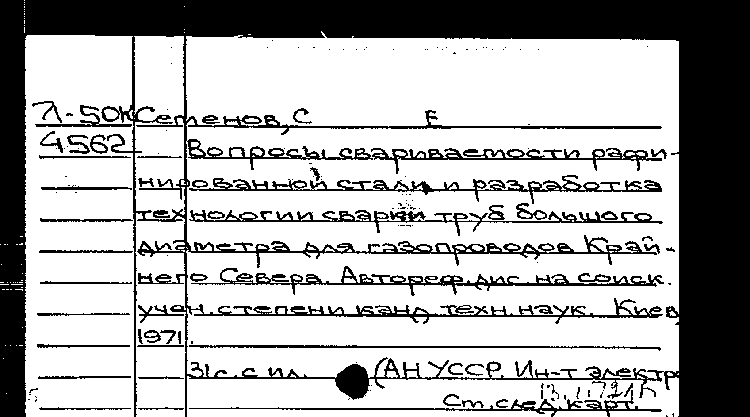 Л-50к Семенов, С Е
4562 Вопросы свариваемости рафи-
нированной стали и разработка
технологии сварки труб большого
диаметра для газопроводов Край-
него Севера. Автореф. дис. на соиск.
учен. степени канд. техн. наук. Киев,
1971.
31 с. с ил. (АН УССР. Ин-т электр
См. след. карт.